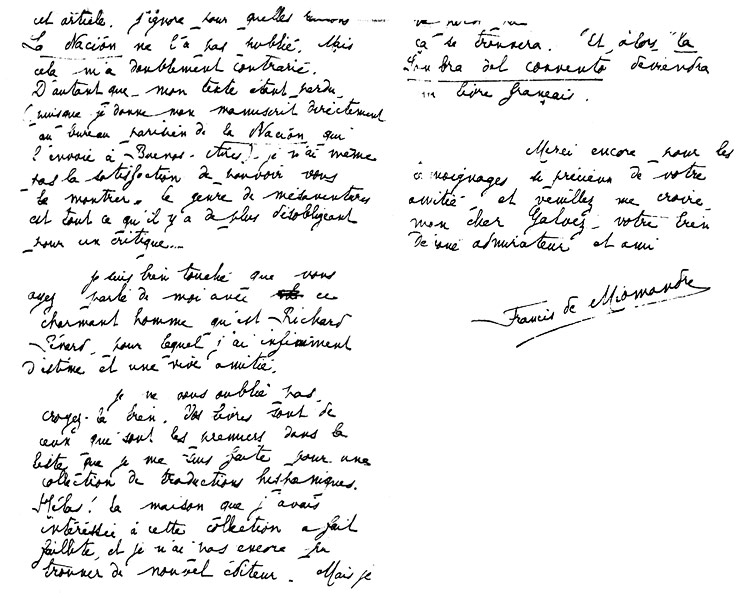 cet article. J'ignore pour quelles raisons
La Nación ne l'a pas publié. Mais
cela m'a doublement contrarié.
D'autant que mon texte étant perdu
(puisque je donne mon manuscrit directement
au bureau parisien de la Nación qui
l'envoie à Buenos-Aires) je n'ai même
pas la satisfaction de pouvoir vous
le montrer. Ce genre de mésaventures
est tout ce qu'il y a de plus désobligeant
pour un critique...
Je suis bien touché que vous
ayez parlé de moi avec ce
charmant homme qu'est Richard
pour lequel j'ai infiniment
d'estime et une vive amitié.
Je ne vous oublie pas,
croyez-le bien. Vos livres sont de
ceux qui sont les premiers dans la
liste que je me suis faite pour une
collection de traductions hispaniques.
Hélas! la maison que j'avais
intéressée à cette collection a fait
faillite, et je n'ai pas encore pu
trouver de nouvel éditeur. Mais je
ça se trouvera. Et alors "La
Sombra del convento deviendra
un livre français.
Merci encore pour les
témoignages si précieux de votre
amitié et veuillez me croire,
mon cher Galvez, votre bien
dévoué admirateur et ami
Francis de Miomandre